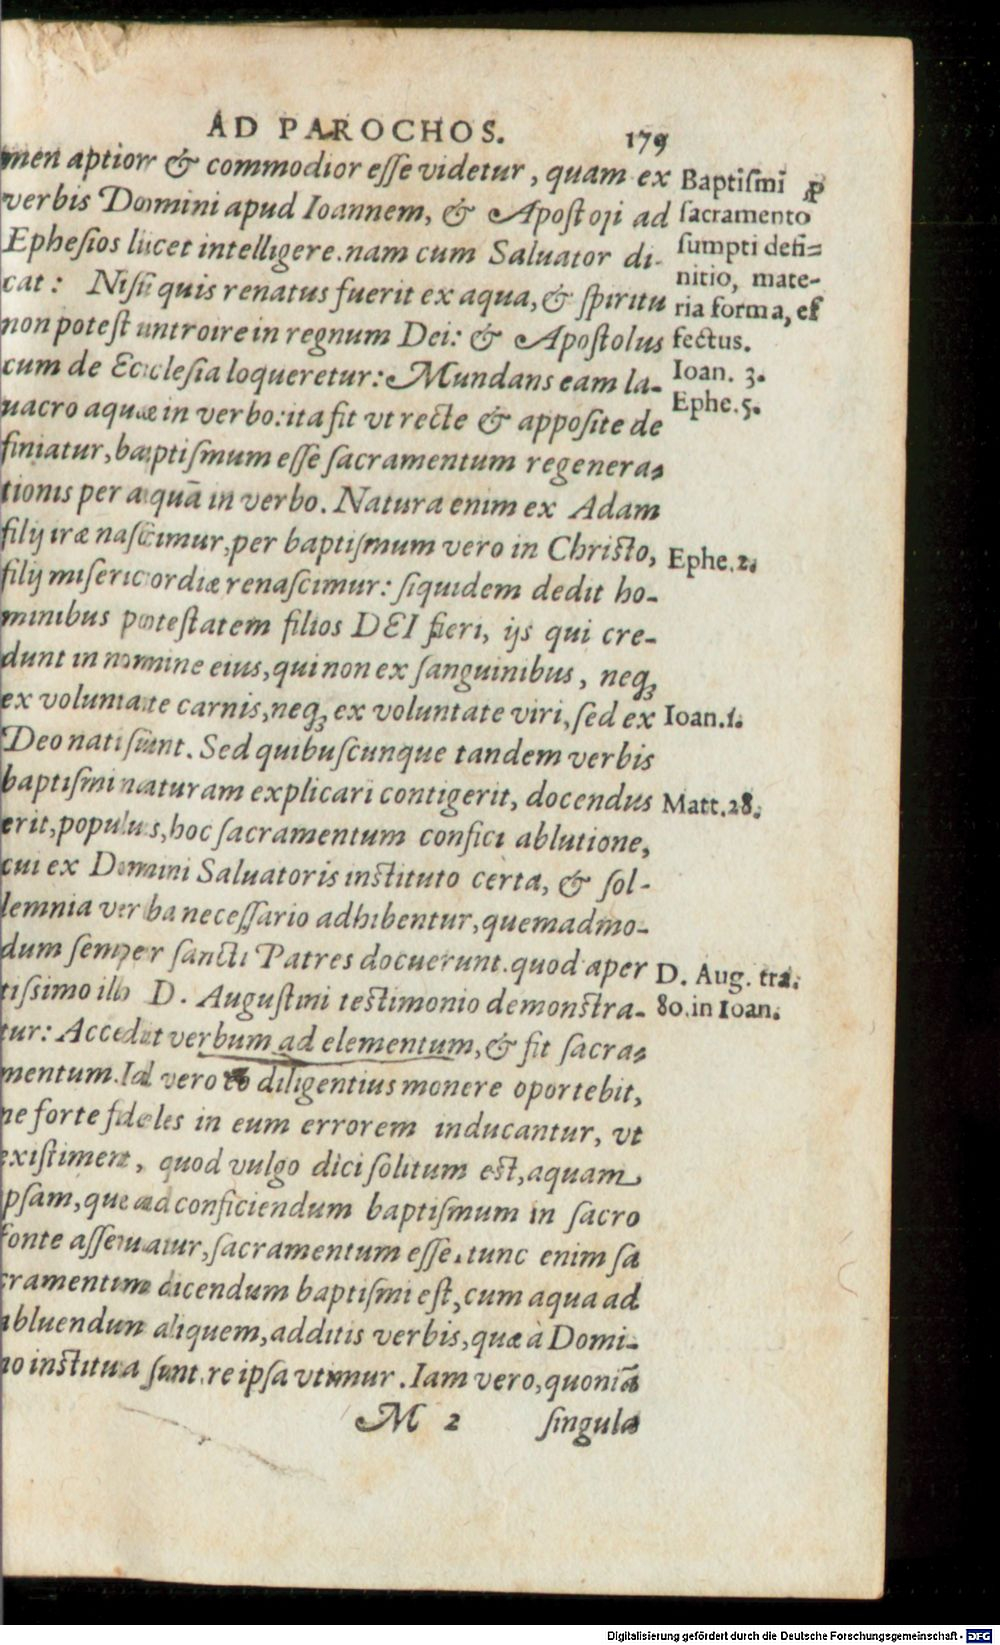 AD PAROCHOS. 179
men aptior & commodior eſſe videtur, quam ex
verbis Domini apud Ioannem, & Apoſtoli ad
Epheſios licet intelligere. nam cum Saluator di-
cat: Niſi quis renatus fuerit ex aqua, & ſpiritu
non poteſt introire in regnum Dei: & Apoſtolus
cum de Eccleſia loqueretur: Mundans eam la-
uacro aquæ in verbo: ita fit vt recte & appoſite de
finiatur, baptiſmum eſſe ſacramentum regenera-
tionis per aquā in verbo. Natura enim ex Adam
filij iræ naſcimur, per baptiſmum vero in Chriſto,
filij miſericordiæ renaſcimur: ſiquidem dedit ho-
minibus poteſtatem filios DEI fieri, ijs qui cre-
dunt in nomine eius, qui non ex ſanguinibus, neqꝫ
ex voluntate carnis, neqꝫ ex voluntate viri, ſed ex
Deo nati ſunt. Sed quibuſcunque tandem verbis
baptiſmi naturam explicari contigerit, docendus
erit, populus, hoc ſacramentum confici ablutione,
cui ex Domini Saluatoris inſtituto certa, & ſol-
lemnia verba neceſſario adhibentur, quemadmo-
dum ſemper ſancti Patres docuerunt. quod aper
tiſsimo illo D. Auguſtini teſtimonio demonſtra-
tur: Accedit verbum ad elementum, & fit ſacra-
mentum. Id vero eo diligentius monere oportebit,
ne forte fideles in eum errorem inducantur, vt
exiſtiment, quod vulgo dici ſolitum eſt, aquam
ipſam, que ad conficiendum baptiſmum in ſacro
fonte aſſeruatur, ſacramentum eſſe. tunc enim ſa
cramentum dicendum baptiſmi eſt, cum aqua ad
abluendum aliquem, additis verbis, quæ à Domi-
no inſtituta ſunt, re ipſa vtimur. Iam vero, quoniā
M 2 ſingula
Baptiſmi ꝓ
ſacramento
ſumpti defi-
nitio, mate-
ria forma, ef
fectus.
Ioan. 3.
Ephe. 5.
Ephe. 2.
Ioan. 1.
Matt. 28.
D. Aug. tra.
80. in Ioan.
Digitalisierung gefördert durch die Deutsche Forschungsgemeinschaft - DFG